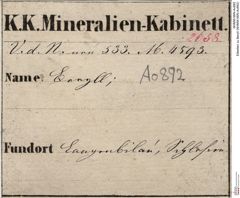 K.K. Mineralien-Kabinett.
2058
V. d. N. 533. M. 4593.
Name
A0892
Fundort Langenbilau, Schlesien